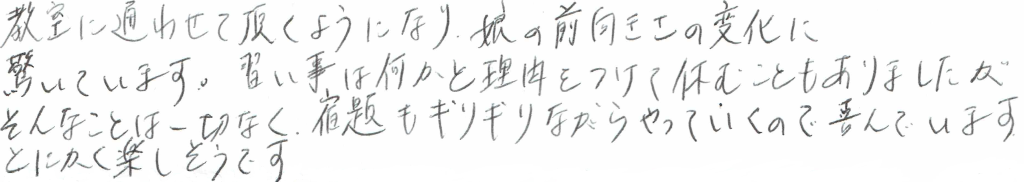 教室に通わせて頂くようになり、娘の前向きさの変化に
驚いています。習い事は何かと理由をつけて休むこともありましたが
そんなことは一切なく、宿題もギリギリながらやっていくので喜んでいます
とにかく楽しそうです